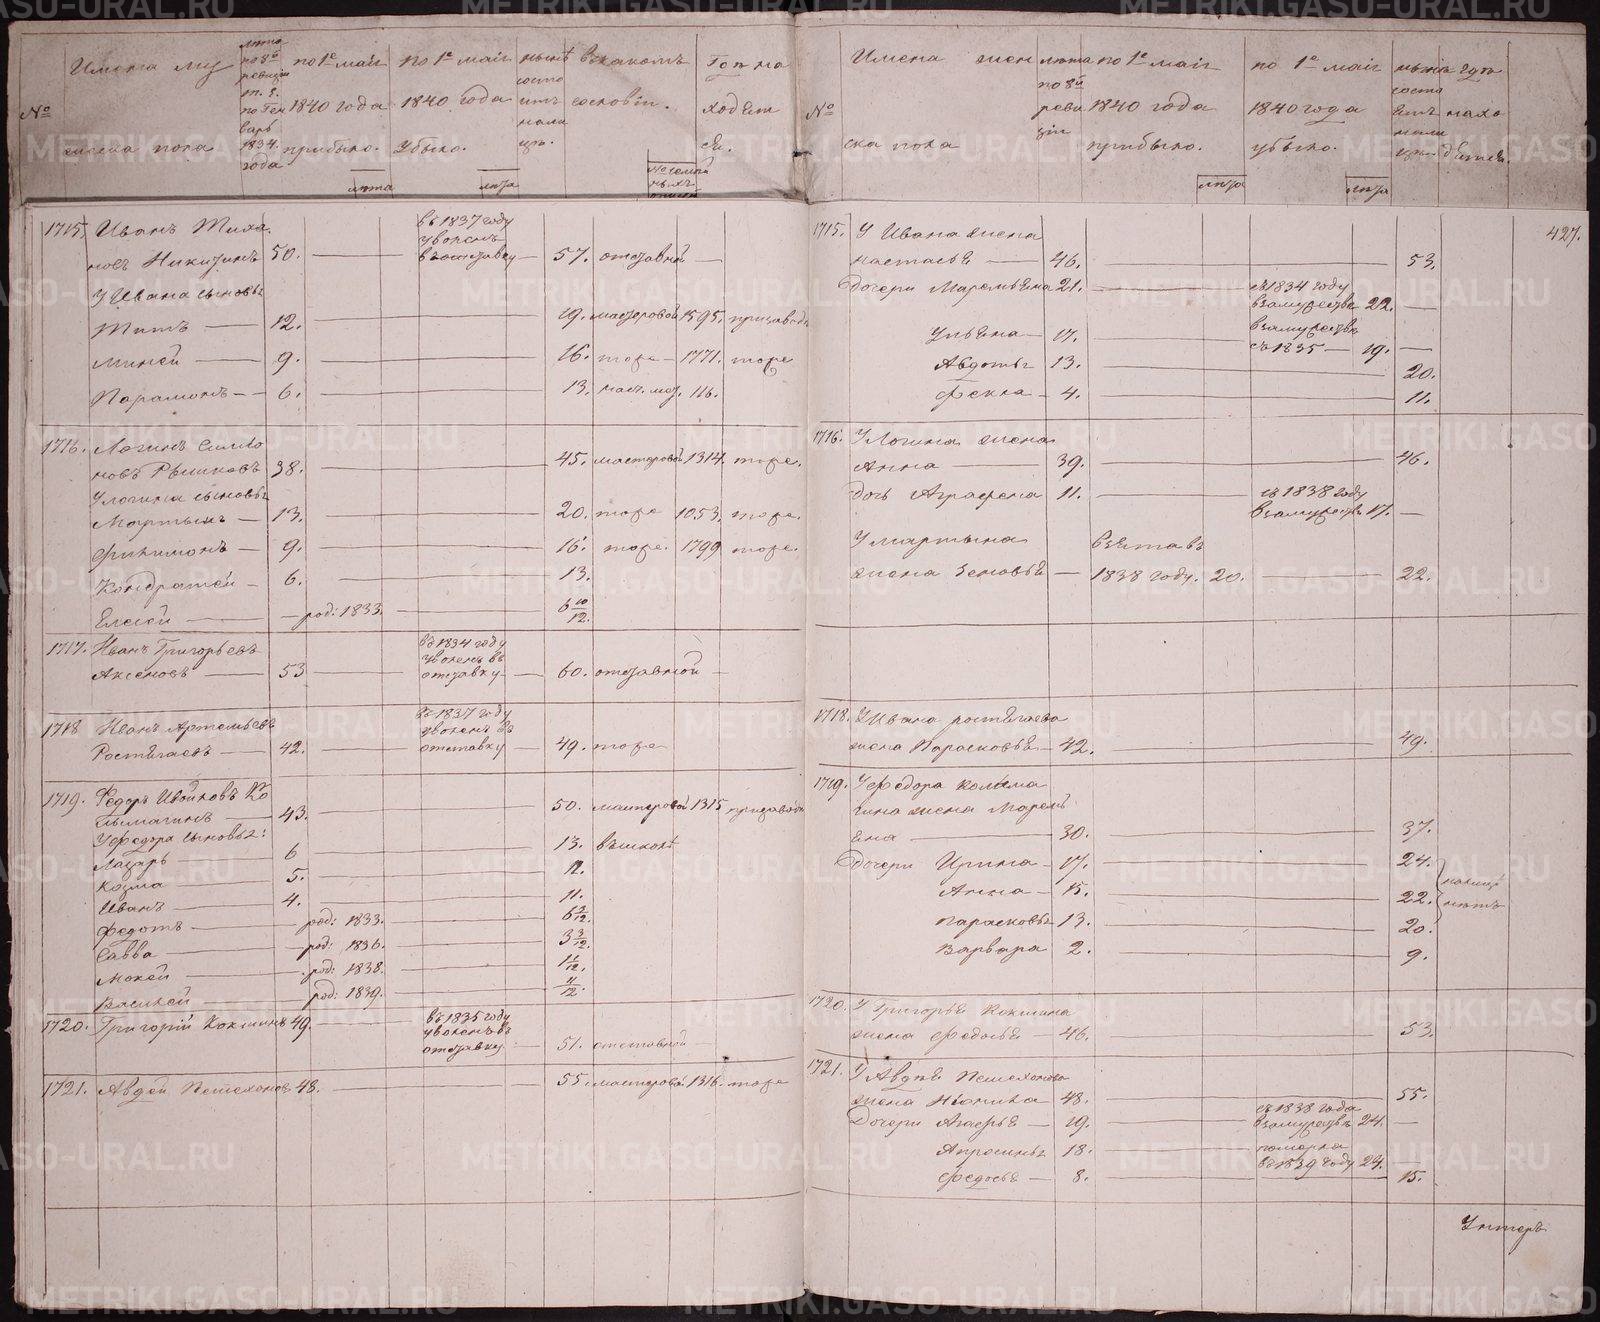 №
Имена му
жеска пола
лѣта
по 8й
ревизіи
т. е.
по Ген
варь
1834.
года
по 1е маія
1840 года
прибыло.
лѣта
по 1е маія
1840 года
убыло.
лѣта
нынѣ
состо
итъ
нали
цо.
въ какомъ
сословіи.
Гдѣ на
ходятъ
ся.
1715. Иванъ Тиха
новъ Никитинъ 50. въ 1837 году
уволенъ
въ отставку 57. отставной
У Ивана сыновья
Титъ 12. 19. мастеровой 1595. при заводѣ
Миней 9. 16. тоже 1771. тоже
Парамонъ 6. 13. 116.
1716. Логинъ Симо
новъ 38. 45. мастеровой 1314. тоже.
У Логина сыновья
Мартынъ 13. 20. тоже 1053. тоже.
Филимонъ 9. 16. тоже. 1799 тоже.
Кондратей 6. 13.
Елисей род: 1833. 6 10/12.
1717. Иванъ Григорьевъ
Аксеновъ 53 въ 1834 году
уволенъ въ
отставку 60. отставной
1718 Иванъ Артемьевъ
Ростягаевъ 42. въ 1837 году
уволенъ въ
отставку 49. тоже
1719. Федоръ Ивойловъ Ко
лымагинъ 43. 50. мастеровой 1315 при заводѣ
У Федора сыновья:
Лазарь 6 13. въ школѣ
Козма 5. 12.
Иванъ 4. 11.
Федотъ род: 1833. 6
Савва род: 1836. 3
Мокей род: 1838.
Василей род: 1839.
1720. Григорій Кокшинъ 49. въ 1835 году
уволенъ въ
отставку 51. отставной
1721. Авдей Пешехоновъ 48. 55. мастеровой 1316. тоже
№
Имена жен
ска пола
лѣта
по 8й
реви
зіи
по 1е маія
1840 года
прибыло.
лѣта
по 1е маія
1840 года
убыло.
лѣта
нынѣ
состо
итъ
нали
цо.
гдѣ
нахо
дятся.
427.
1715. У Ивана жена
Настасья 46. 53.
Дочери Маремьяна 21. съ 1834 году
въ замужствѣ 22.
Ульяна 17. въ замужствѣ
съ 1835 19.
Авдотья 13. 20.
Фекла 4. 11.
1716. У Логина жена
Анна 39. 46.
Дочь Аграфена 11. съ 1838 году
въ замужствѣ 17.
У Мартына
жена Зеновья взята въ
1838 году. 20. 22.
1718. У Ивана Ростягаева
жена Парасковья 42. 49.
1719. У Федора Колыма
гина жена Марем
яна 30. 37.
Дочери Ирина 17. 24.
Анна 15. 22.
Парасковья 13. 20.
Варвара 2. 9.
1720. У Григорья Кокшина
жена Федосья 46. 53.
1721. У Авдѣя Пешехонова
жена 48. 55.
Дочери Агафья 19. съ 1838 года
въ замужствѣ 24.
Апросинья 18. померла
въ 1839 году 24.
Федосья 8. 15.
Унтеръ
METRIKI.GASO-URAL.RU